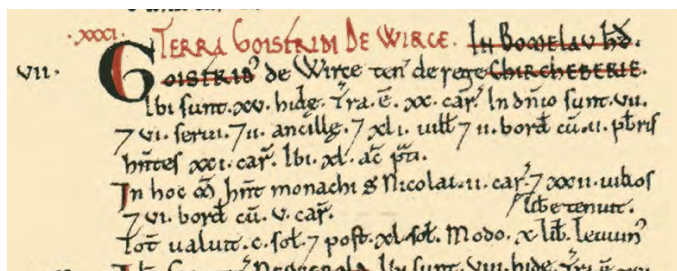 ·XXXI· TERRA GOISFRIDI DE WIRCE. IN BOMELAV HD.
VII. GOISFRID' de Wirce ten' de rege CHIRCHEBERIE.
Ibi sunt .xv. hidę. Tra. ē. xx. car'. In dn̄io sunt .vii.
7 vi. serui. 7 ii. ancillę. 7 xli. uill̄i 7 ii. bord̄ cū .ii. pb̄ris
hn̄tes xxi. car̄. Ibi. xl. ac̄ p̄ti.
In hoc m̄ hn̄t monachi S Nicolai .ii. car̄. 7 xxii. uill̄os
7 vi. bord̄ cū. v. car̄. lib̄e tenuit.
Tot̄ ualuit. c. sol̄. 7 post. xl. sol̄. Modo. x. lib̄. Leuuin'
Ibi sunt. VIII. hidę.